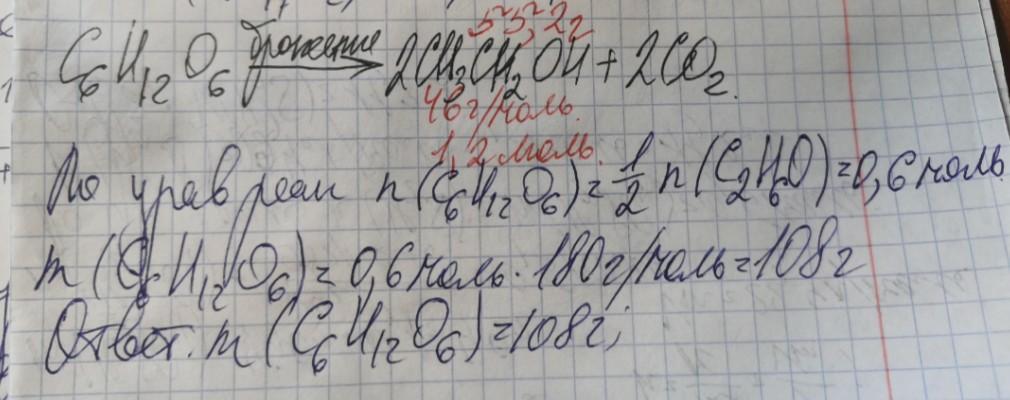 55,2г
C₆H₁₂O₆ брожение → 2CH₃CH₂OH + 2CO₂.
46г/моль.
1,2 моль.
По урав реак n(C₆H₁₂O₆)=1/2 n(C₂H₆O)=0,6 моль
m(C₆H₁₂O₆)=0,6 моль · 180г/моль=108г
Ответ: m(C₆H₁₂O₆)=108г;